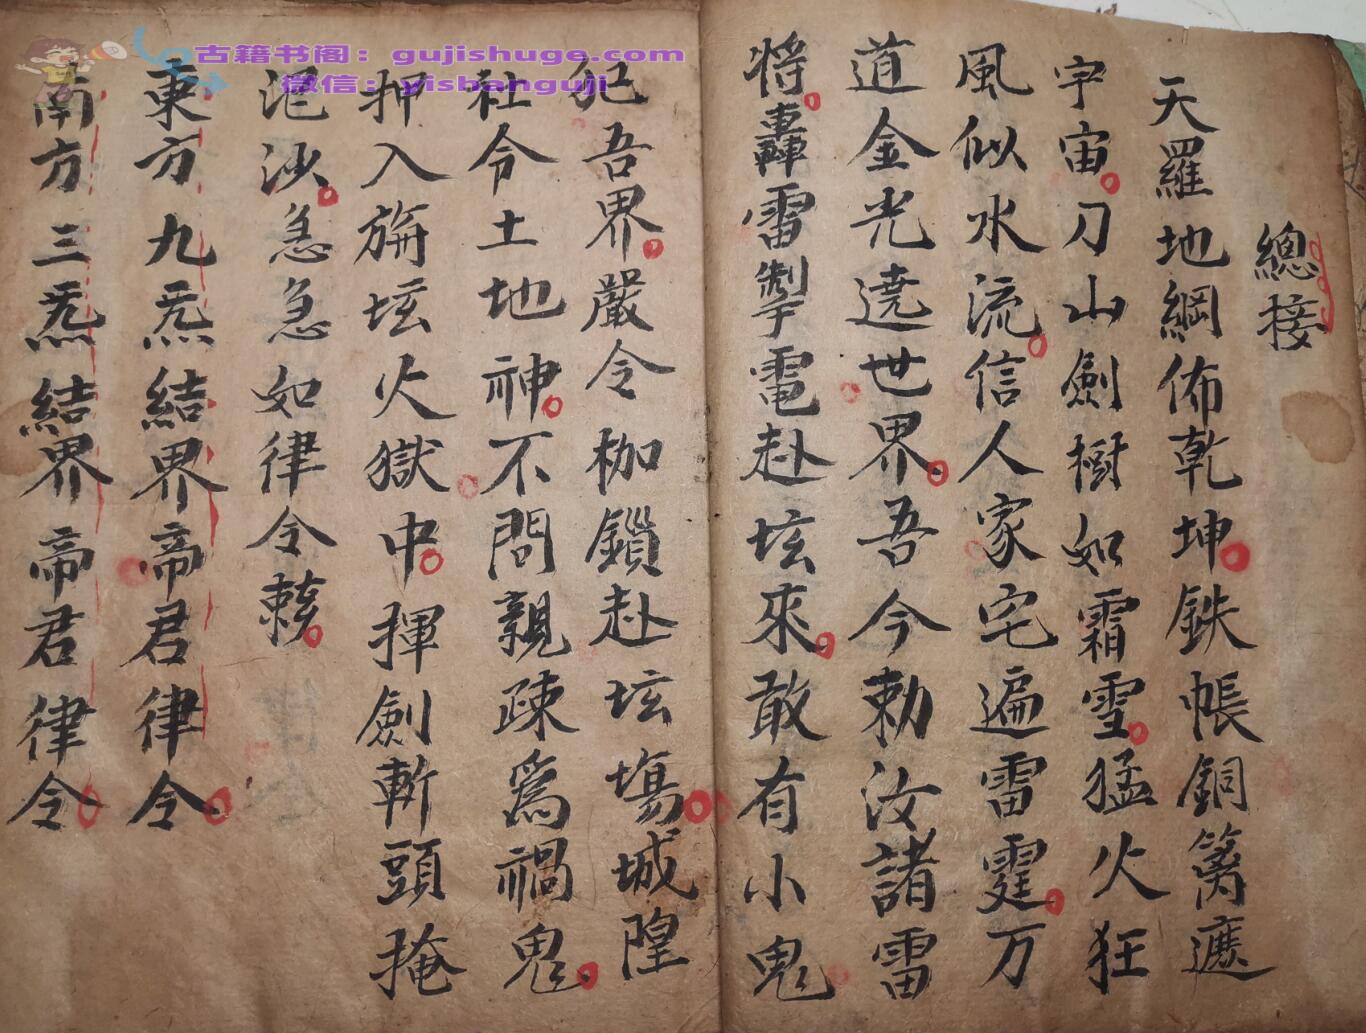 古籍书阁：gujishuge.com
微信：yishanguji
總接
天羅地綱佈乾坤鉄帳銅篱遮
宇宙刀山劍樹如霜雪猛火狂
風似水流信人家宅遍雷霆万
道金光遶世界吾今勅汝諸雷
将轟雷掣電赴坛來敢有小鬼
犯吾界嚴令枷鎖赴坛塲城隍
社令土地神不問親疎為禍鬼
押入旃坛火獄中揮劍斬頭掩
沙急急如律令
東方九炁結界帝君律令
南方三炁結界帝君律令